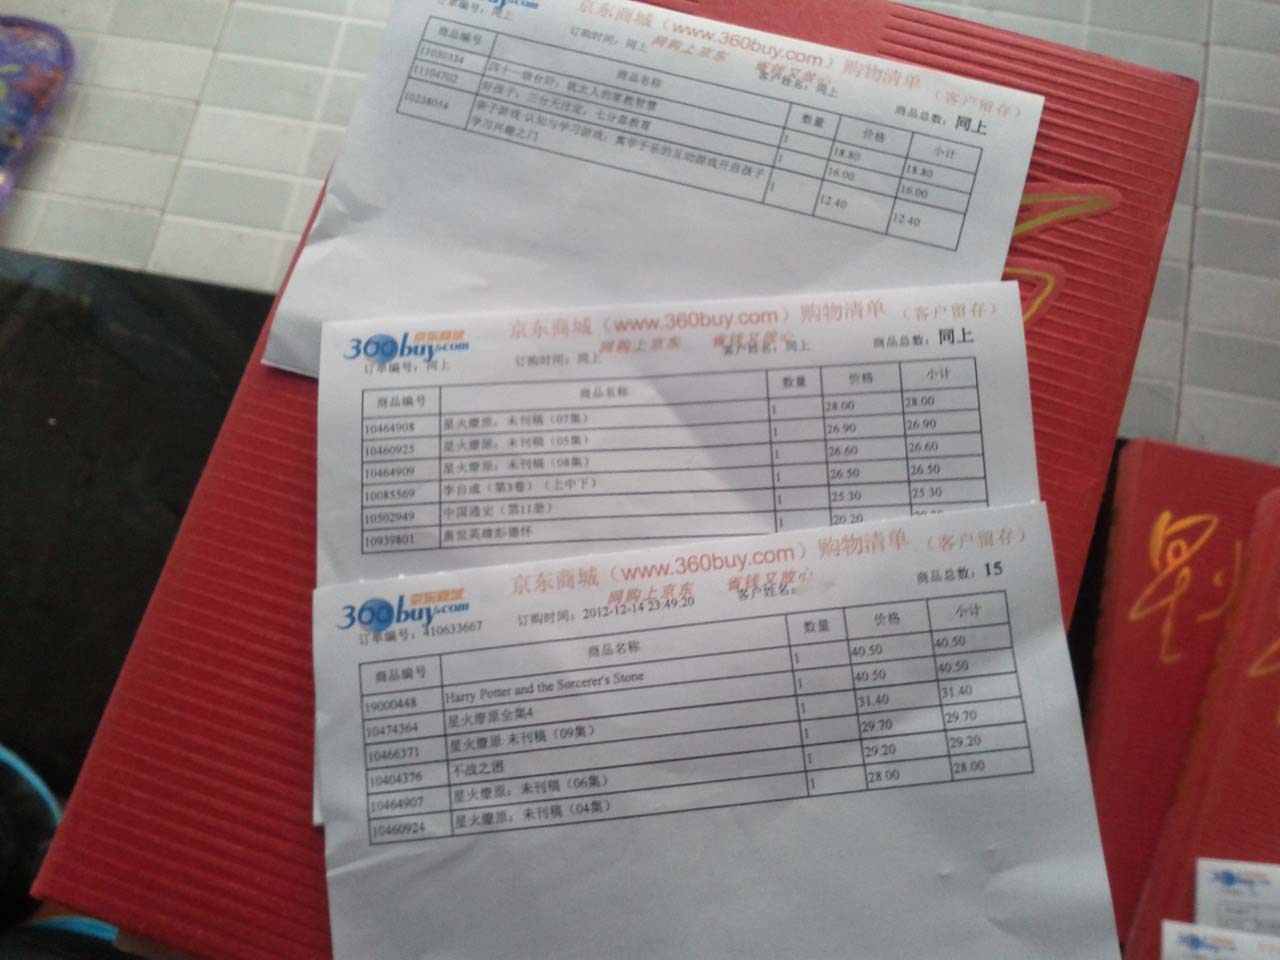 京东商城（www.360buy.com）购物清单 （客户留存）
网购上京东 省钱又放心
订单编号：同上 订购时间：同上 客户姓名：同上 商品总数：同上
商品编号 商品名称 数量 价格 小计
11030334 四十一级台阶：犹太人的家教智慧 1 18.80 18.80
11104702 好孩子：三分天注定，七分靠教育 1 16.00 16.00
10238054 亲子游戏·认知与学习游戏：寓学于乐的互动游戏开启孩子 1 12.40 12.40
学习兴趣之门
360buy.com 京东商城
京东商城（www.360buy.com）购物清单 （客户留存）
网购上京东 省钱又放心
订单编号：同上 订购时间：同上 客户姓名：同上 商品总数：同上
商品编号 商品名称 数量 价格 小计
10464908 星火燎原：未刊稿（07集） 1 28.00 28.00
10460925 星火燎原：未刊稿（05集） 1 26.90 26.90
10464909 星火燎原：未刊稿（08集） 1 26.60 26.60
10085569 李自成（第3卷）（上中下） 1 26.50 26.50
10502949 中国通史（第11册） 1 25.30 25.30
10939801 盖世英雄彭德怀 1 20.20
360buy.com 京东商城
京东商城（www.360buy.com）购物清单 （客户留存）
网购上京东 省钱又放心
订单编号：410633667 订购时间：2012-12-14 23:49:20 客户姓名： 商品总数：15
商品编号 商品名称 数量 价格 小计
19000448 Harry Potter and the Sorcerer's Stone 1 40.50 40.50
10474364 星火燎原全集4 1 40.50 40.50
10466371 星火燎原 未刊稿（09集） 1 31.40 31.40
10404376 不战之困 1 29.70 29.70
10464907 星火燎原：未刊稿（06集） 1 29.20 29.20
10460924 星火燎原：未刊稿（04集） 1 28.00 28.00